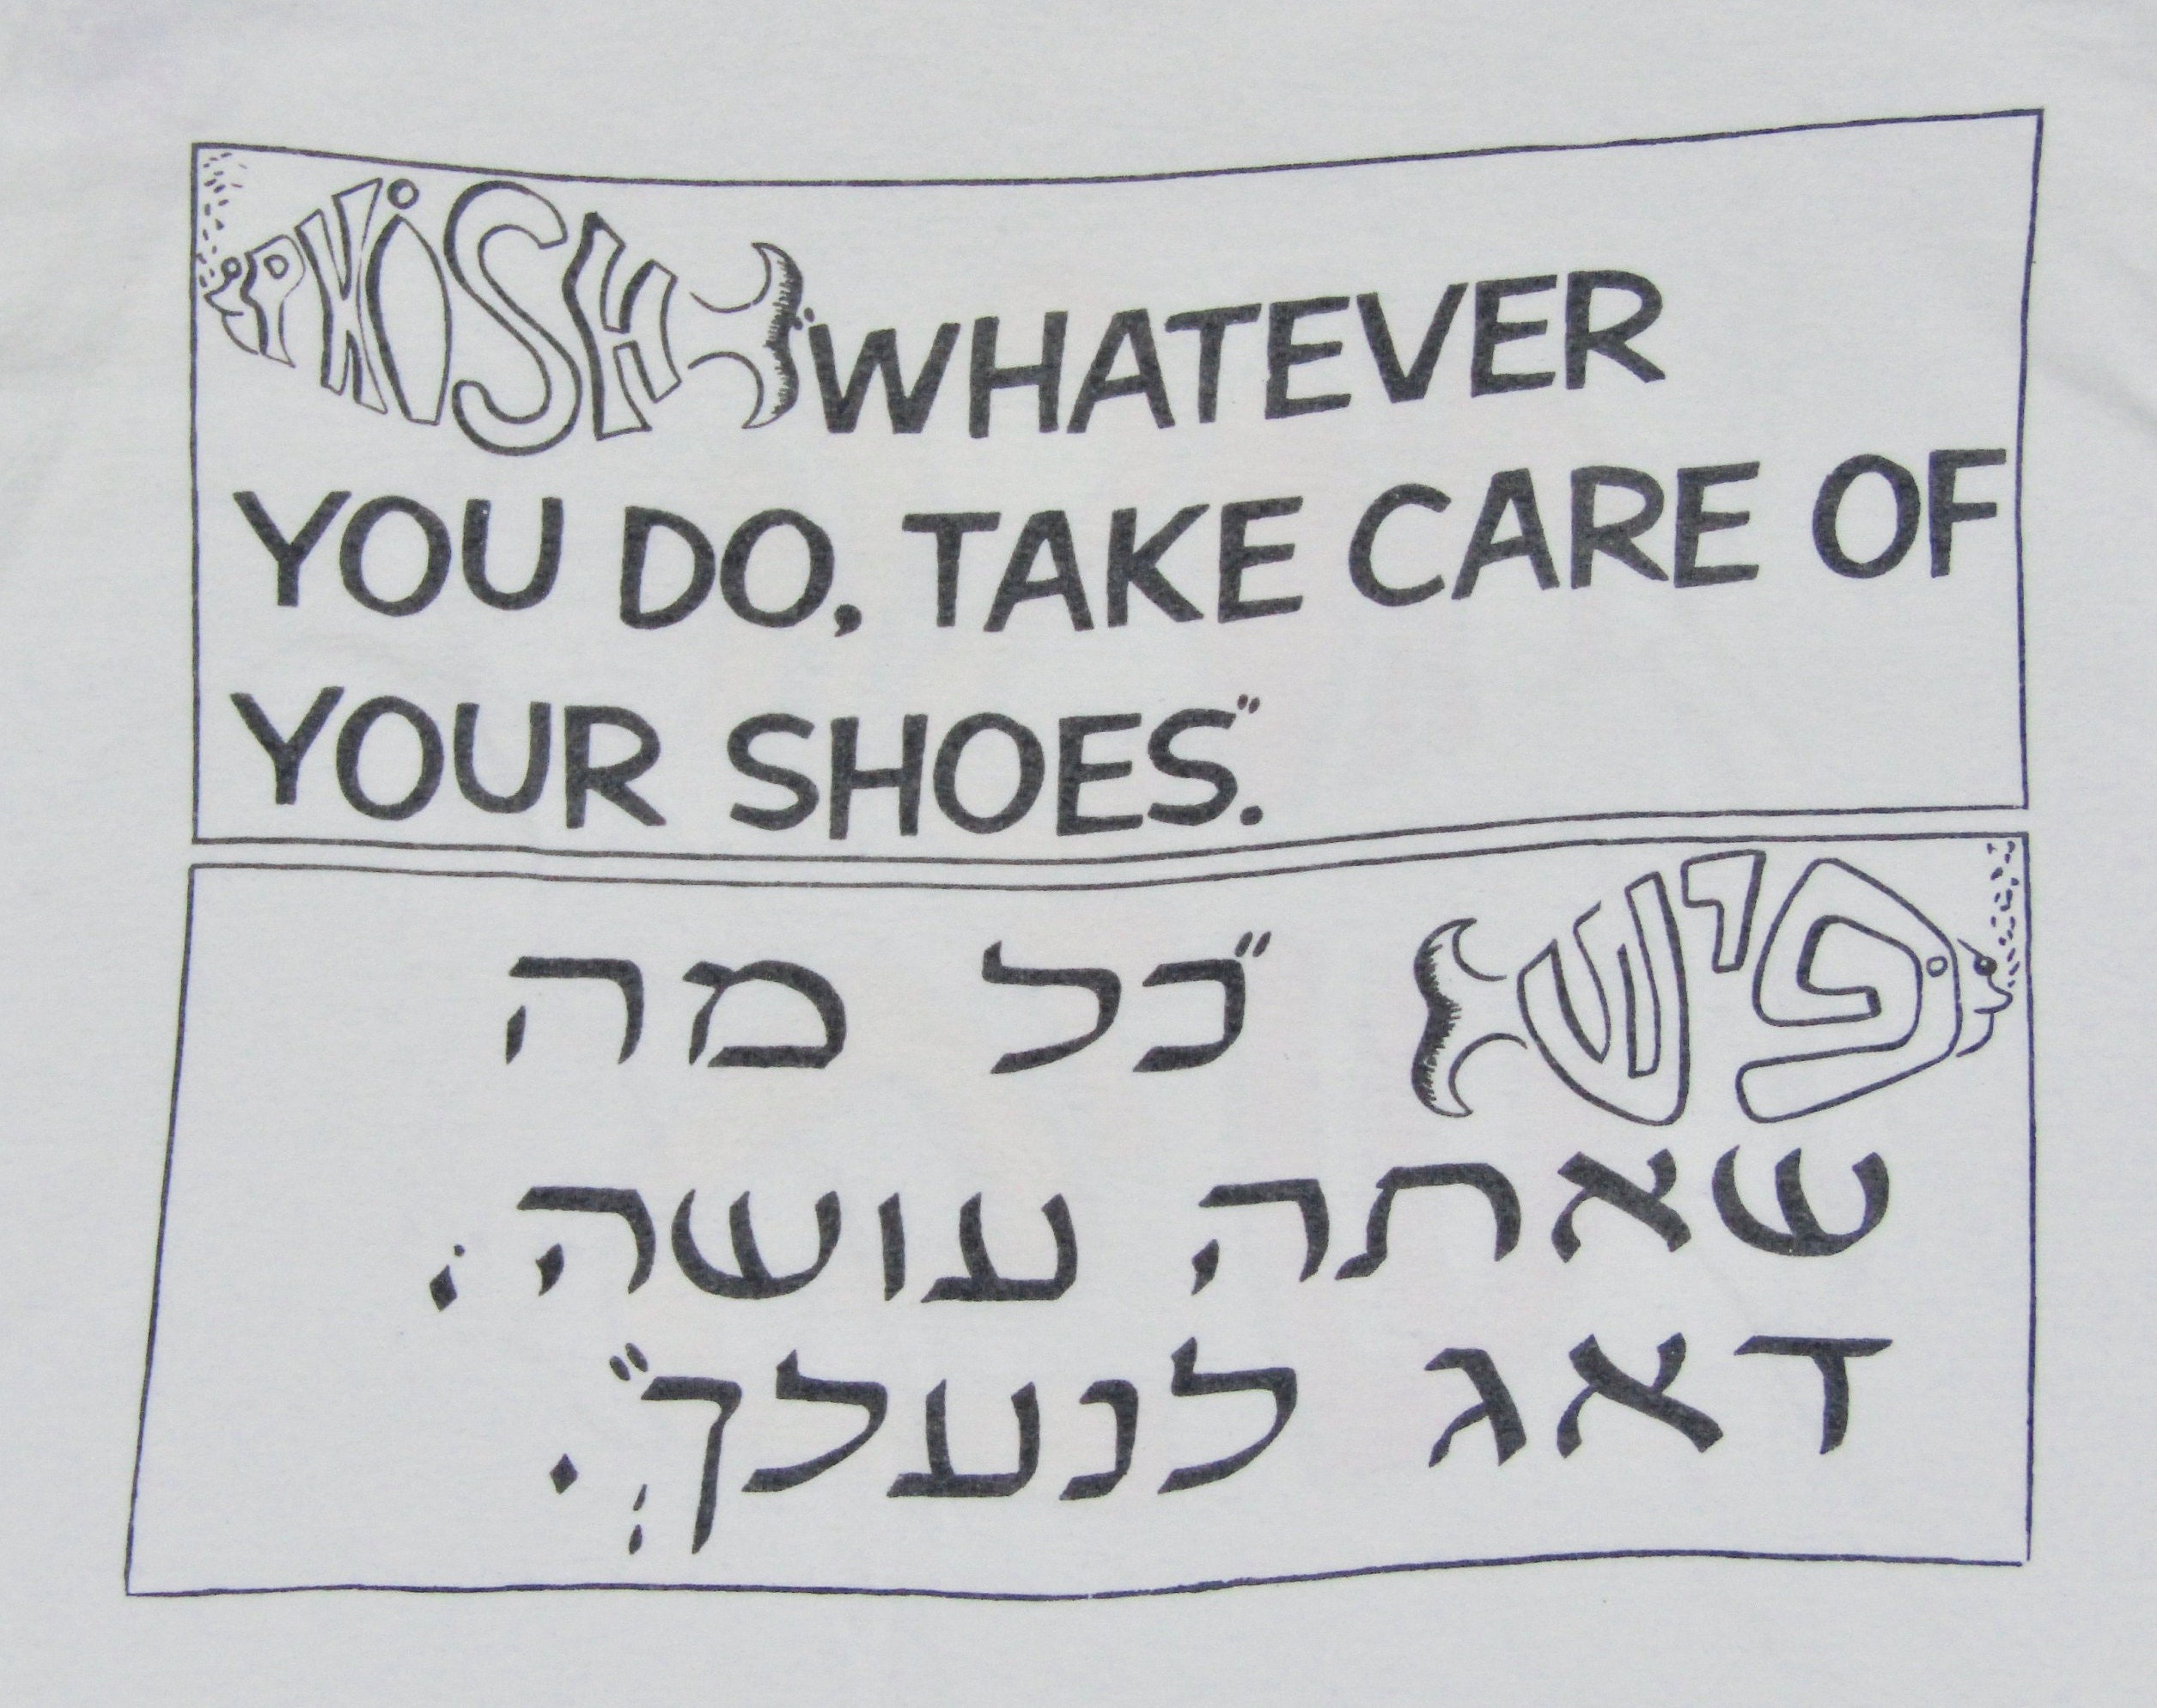 PHiSH "WHATEVER
YOU DO, TAKE CARE OF
YOUR SHOES".
פיש "כל מה
שאתה עושה;
דאג לנעלך".